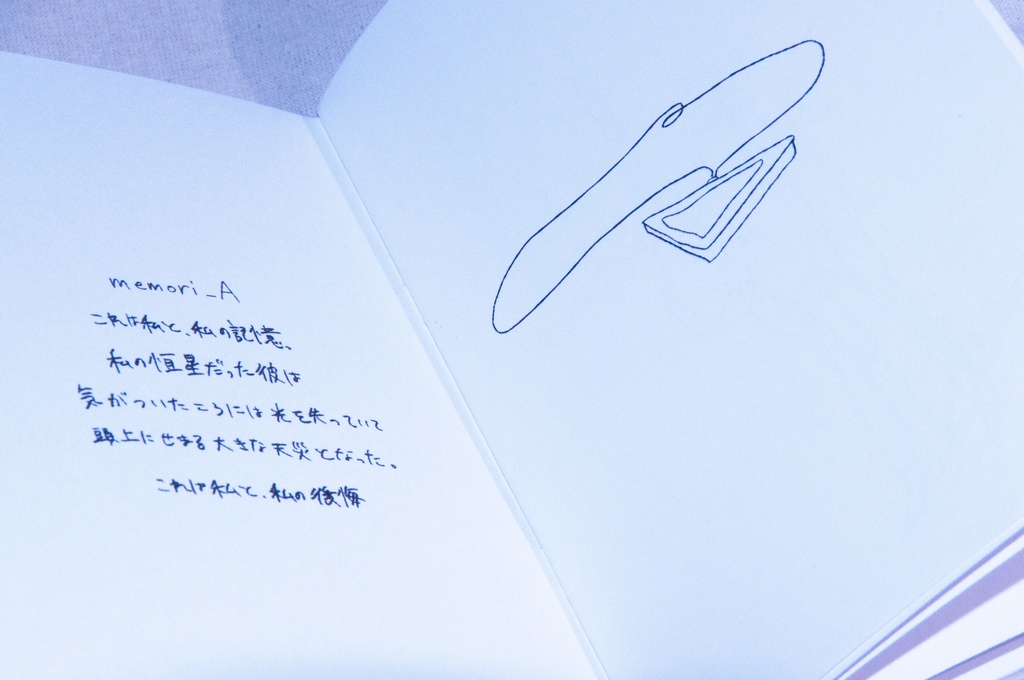 memori_A
これは私と、私の記憶、
私の恒星だった彼は
気がついたころには光を失っていて
頭上にせまる大きな天災となった。
これは私と、私の後悔